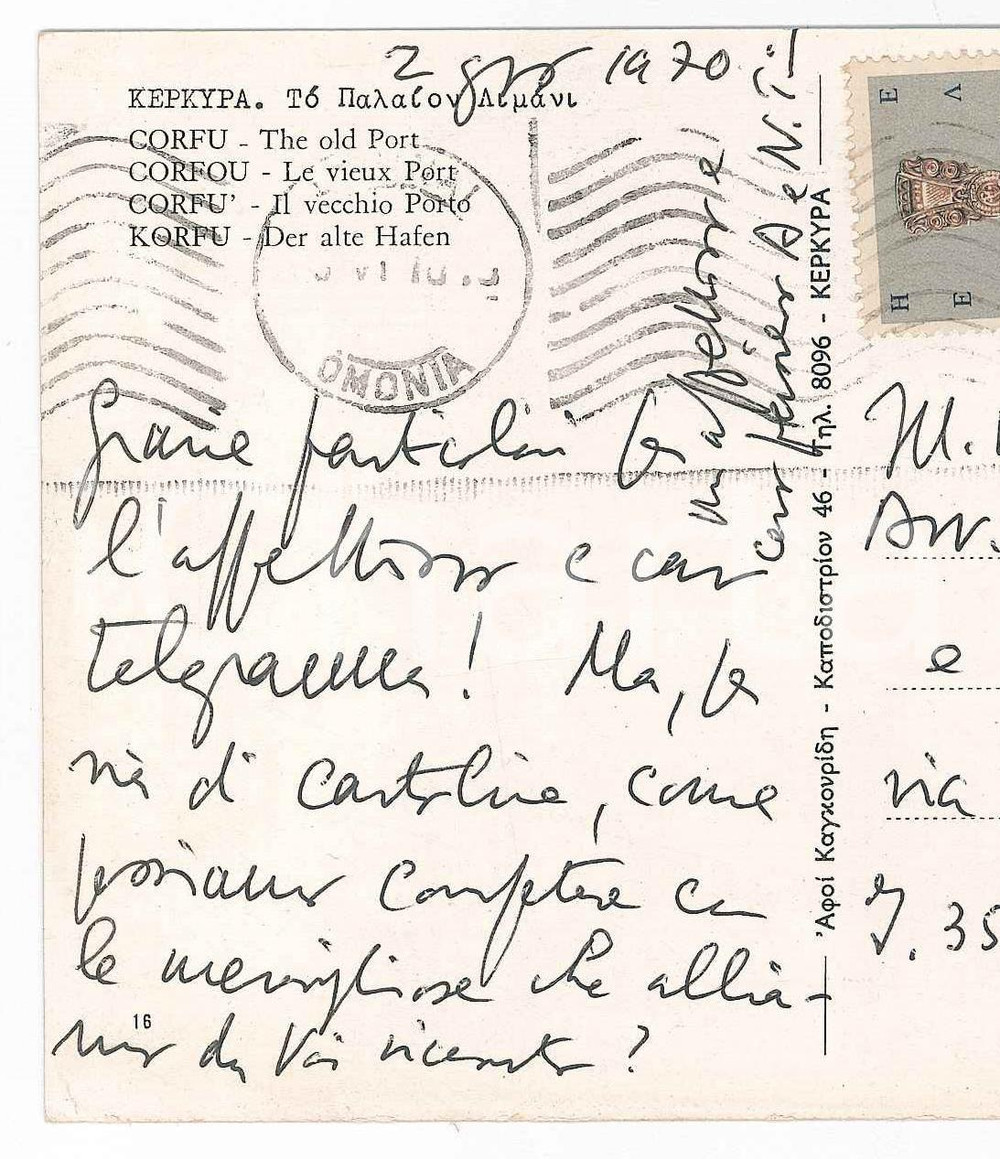 2 1970
ΚΕΡΚΥΡΑ. Τό Παλαίον Λιμάνι
CORFU - The old Port
CORFOU - Le vieux Port
CORFU' - Il vecchio Porto
KORFU - Der alte Hafen
OMONIA
Grazie particolari per
l'affettuoso e caro
telegramma! Ma, per
via di cartoline, come
possiamo competere con
le meravigliose che abbia-
mo da Voi ricevuto?
16
un affettuoso e
caro pensiero A e N. T.
'Αφοί Καγκουρίδη - Καποδιστρίου 46 - Τηλ. 8096 - ΚΕΡΚΥΡΑ
Ε Λ
Η Ε
M.
Avv.
e
via
35